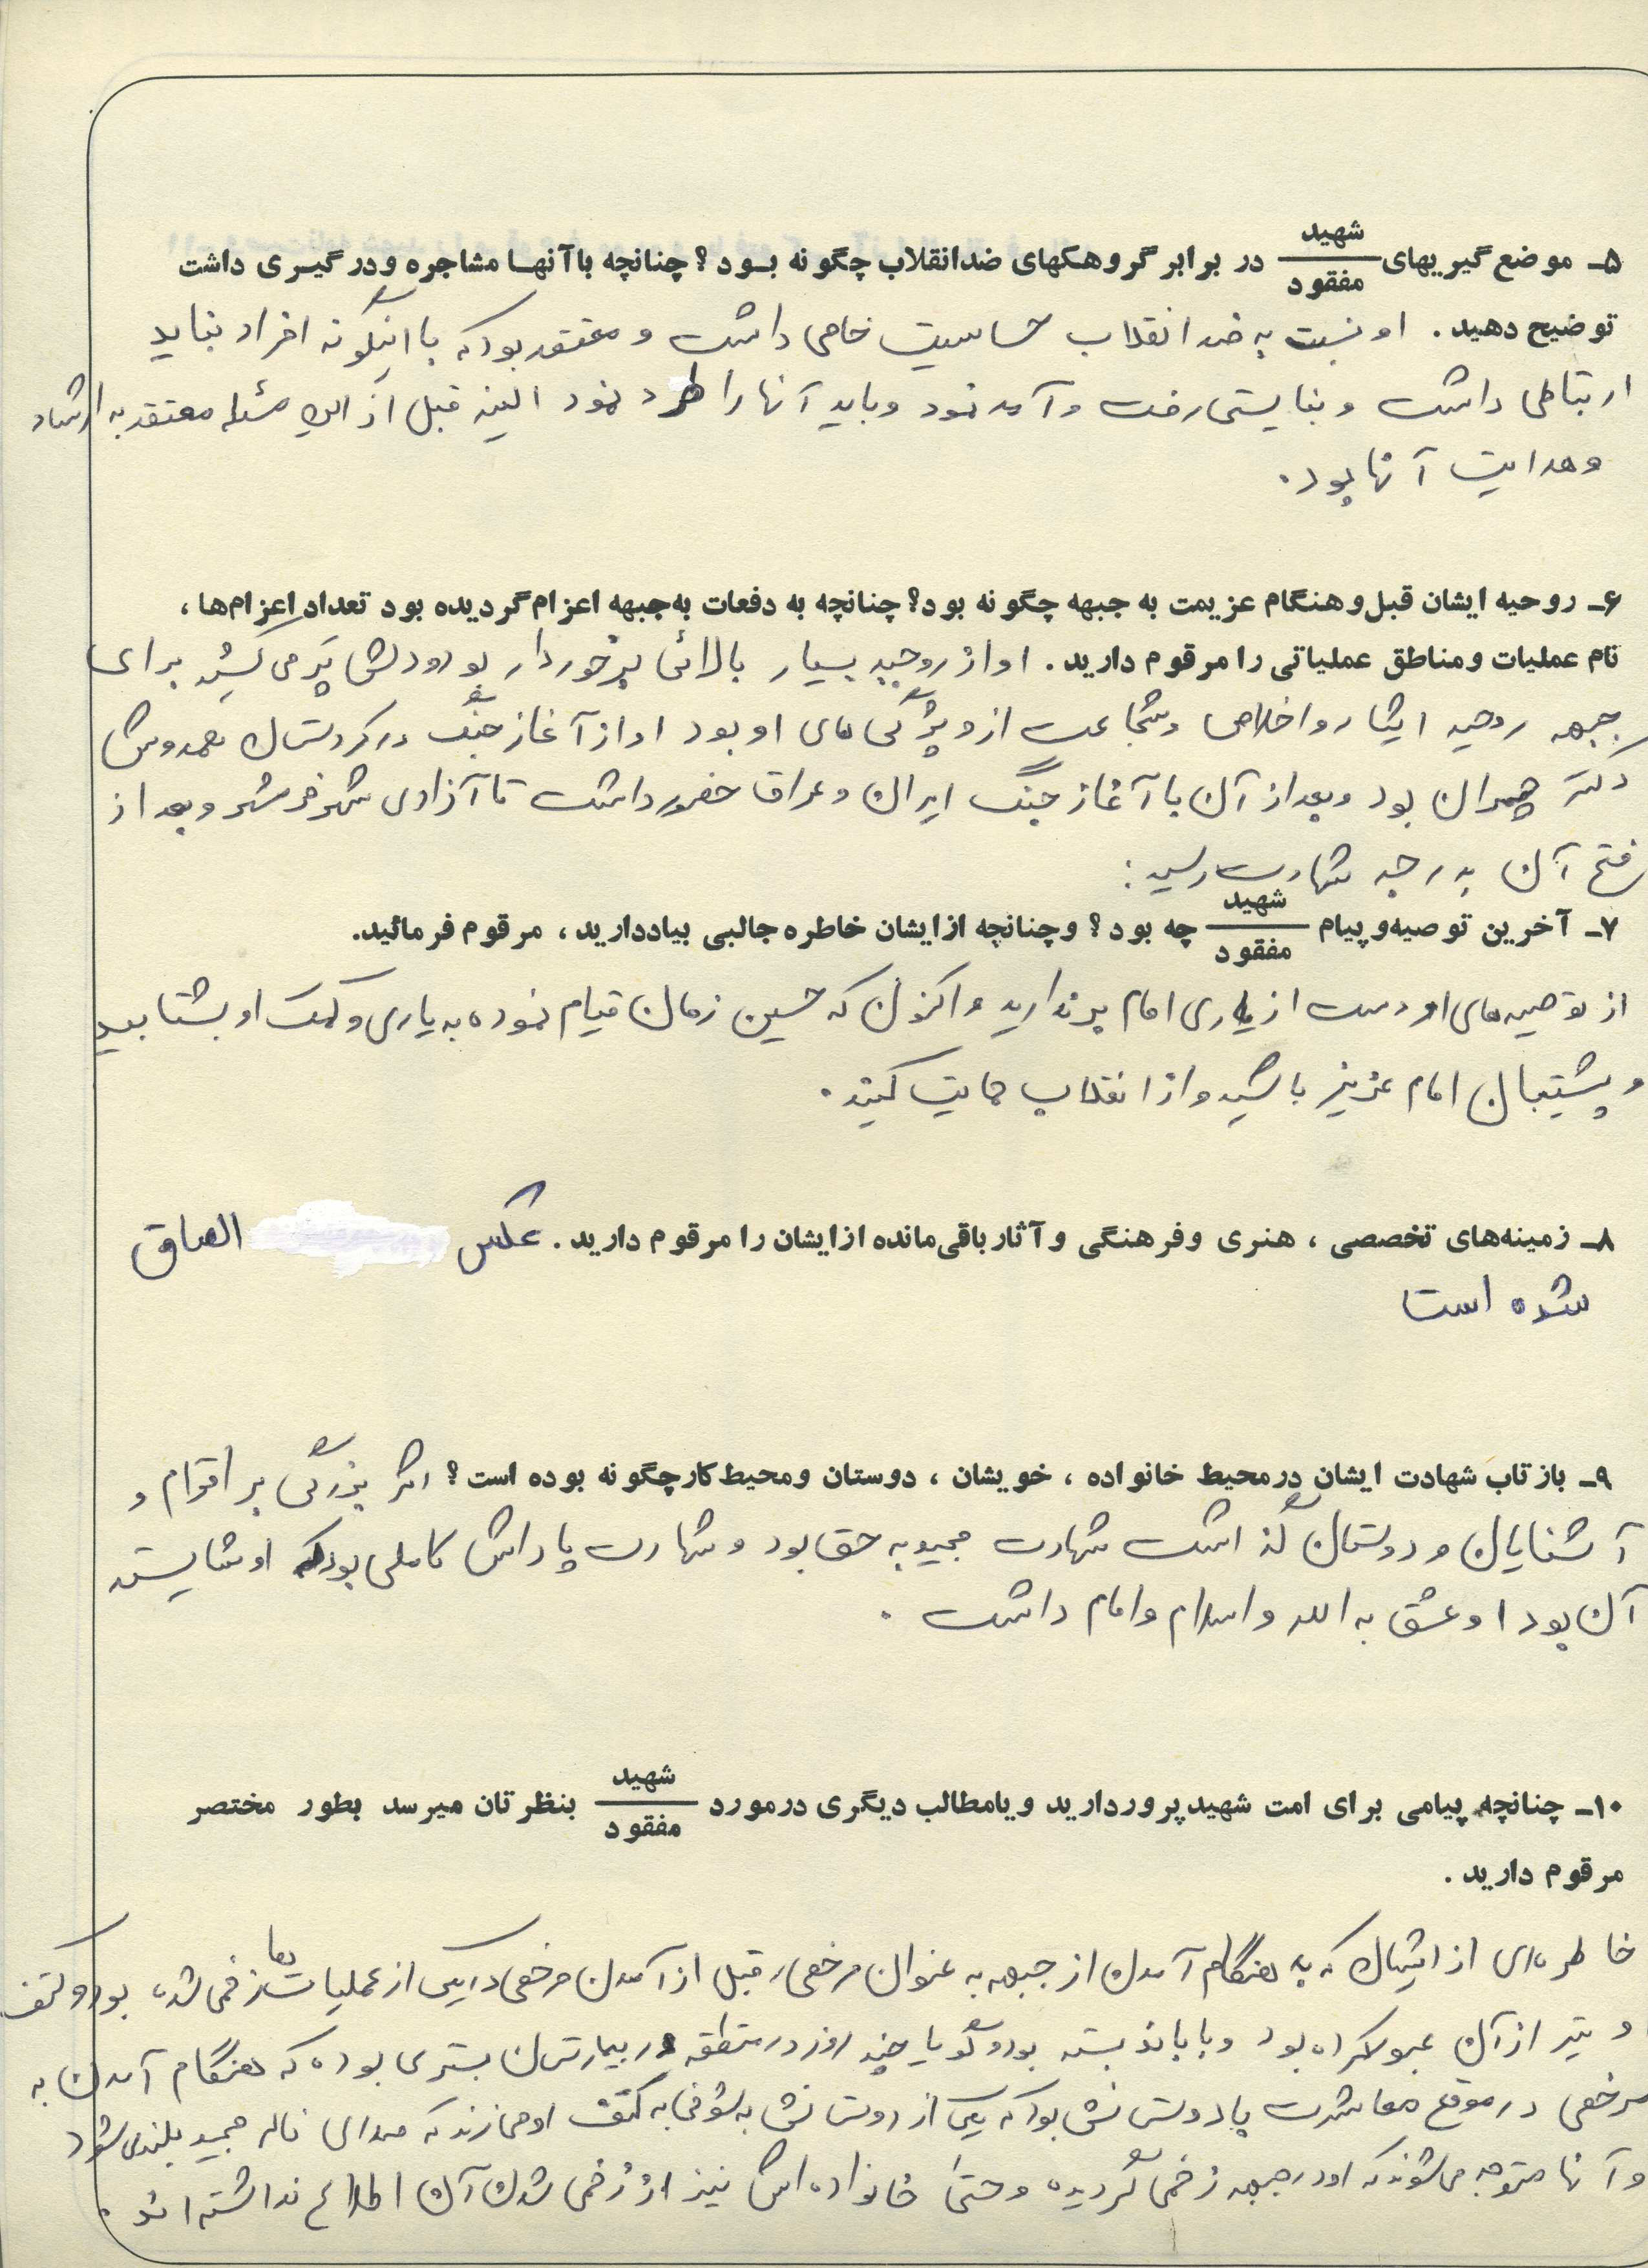 ۵ـ موضع‌گیریهای شهید/مفقود در برابر گروهکهای ضدانقلاب چگونه بود؟ چنانچه باآنها مشاجره ودرگیری داشت
توضیح دهید. او نسبت به ضد انقلاب حساسیت خاصی داشت و معتقد بود که با اینگونه افراد نباید
ارتباطی داشت و نبایستی رفت و آمد نمود و باید آنها را طرد نمود البته قبل از این مسئله معتقد به ارشاد
و هدایت آنها بود.
۶ـ روحیه ایشان قبل‌وهنگام عزیمت به جبهه چگونه بود؟ چنانچه به دفعات به‌جبهه اعزام‌گردیده بود تعداد اعزام‌ها،
نام عملیات ومناطق عملیاتی را مرقوم دارید. او از روحیه بسیار بالائی برخوردار بود و دلش پر می کشید برای
جبهه روحیه ایثار و اخلاص و شجاعت از ویژگی های او بود او از آغاز جنگ در کردستان همدوش
دکتر چمران بود و بعد از آن با آغاز جنگ ایران و عراق حضور داشت تا آزادی شهر خرمشهر و بعد از
فتح آن به درجه شهادت رسید:
۷ـ آخرین توصیه‌وپیام شهید/مفقود چه بود؟ وچنانچه ازایشان خاطره جالبی بیاددارید، مرقوم فرمائید.
از توصیه های او دست از یاری امام برندارید و اکنون که حسین زمان قیام نموده به یاری و کمک او بشتابید
و پشتیبان امام عزیز باشید و از انقلاب حمایت کنید.
۸ـ زمینه‌های تخصصی، هنری وفرهنگی وآثارباقی‌مانده ازایشان را مرقوم دارید. عکس الصاق
شده است
۹ـ بازتاب شهادت ایشان درمحیط خانواده، خویشان، دوستان ومحیط‌کارچگونه بوده است؟ اثر بزرگی بر اقوام و
آشنایان و دوستان گذاشت شهادت مجید به حق بود و شهادت پاداش کاملی بود که او شایسته
آن بود او عشق به الله و اسلام و امام داشت.
۱۰ـ چنانچه پیامی برای امت شهیدپروردارید ویامطالب دیگری درمورد شهید/مفقود بنظرتان میرسد بطور مختصر
مرقوم دارید.
خاطره ای از ایشان که به هنگام آمدن از جبهه به عنوان مرخصی، قبل از آمدن مرخصی در یکی از عملیات ها زخمی شده بود و کتف
او تیر از آن عبور کرده بود و با باند بسته بود و گویا چند روز در منطقه در بیمارستان بستری بوده که هنگام آمدن به
مرخصی در موقع معاشرت با دوستانش بود که یکی از دوستانش به شوخی به کتف او می زند که صدای ناله مجید بلند می شود
و آنها متوجه می شوند که او در جبهه زخمی گردیده و حتی خانواده اش نیز از زخمی شدن آن اطلاع نداشته اند.